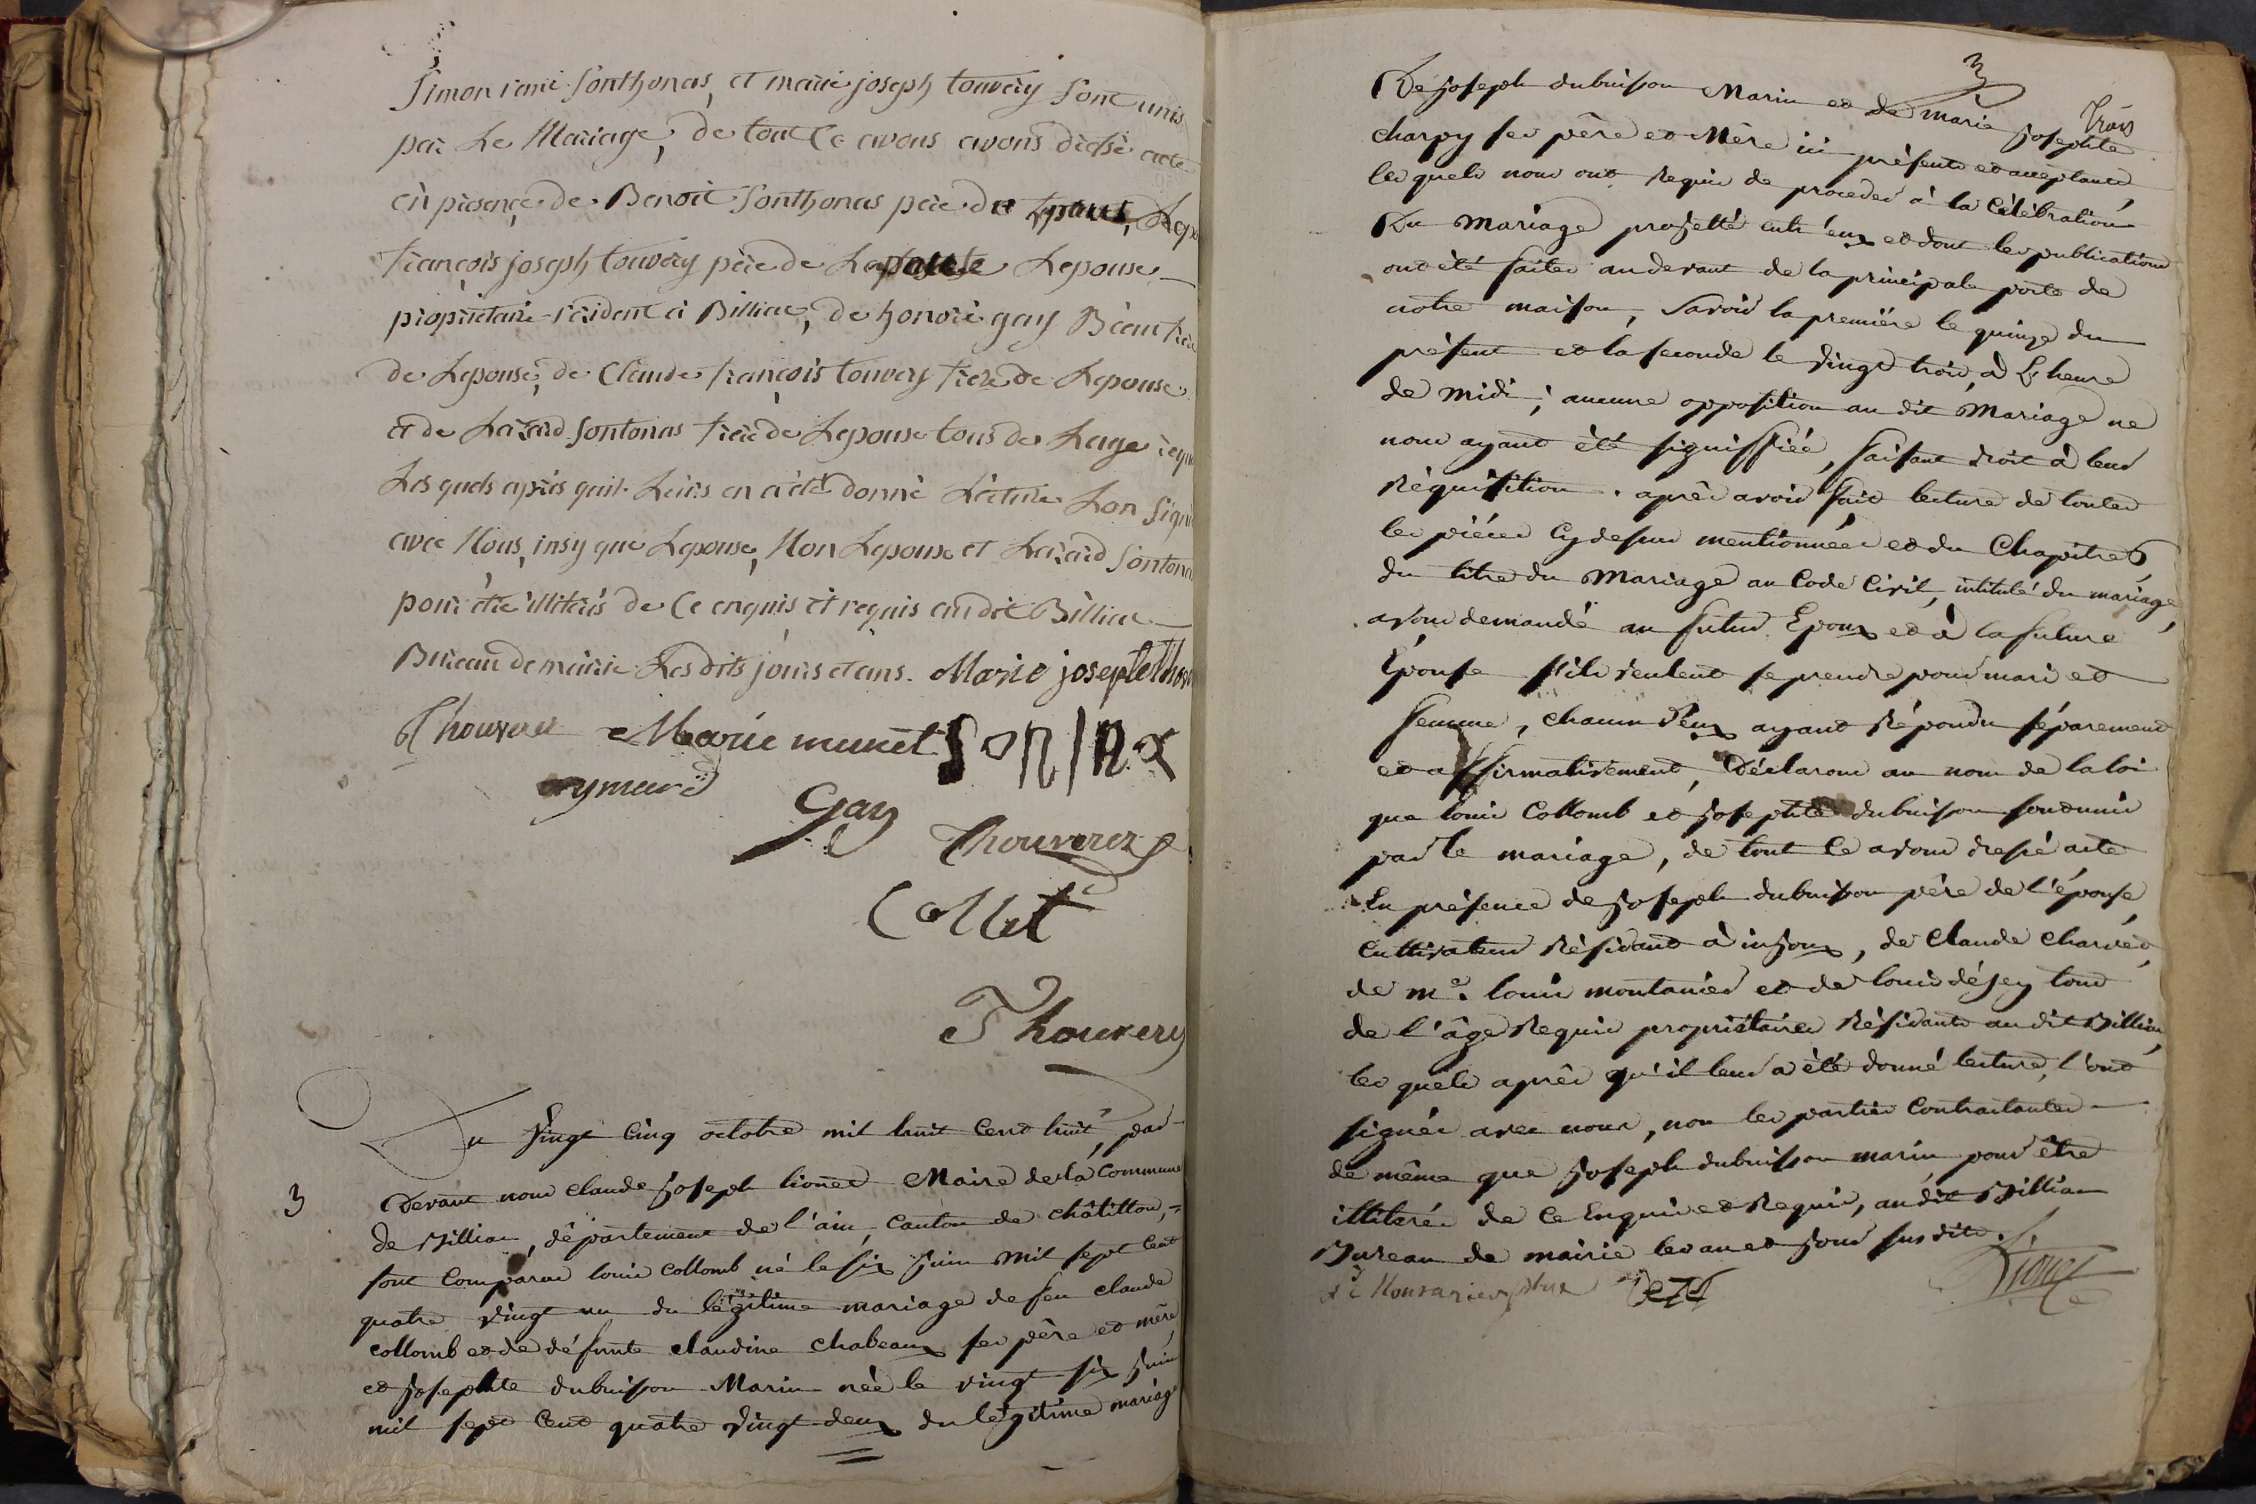 Simon rené Sonthonas, et marie joseph touvery sont unis
par Le Mariage, de tout Ce avons avons dressé acte
en présence de Benoit Sonthonas père de
françois joseph touvery père de Lepouse
propriétaire résident à Billiac, de honoré gay Beau frère
de Lepouse, de Claude françois touvery frère de Lepouse
et de Lazard Sontonas frère de Lepouse tous de Lage requ
Les quels après quil Leurs en a été donné Lecture Lon Signé
avec Nous, insy que Lepouse, Non Lepoux et Lazard Sontona
pour être illiterés de Ce enquis et requis au dit Billiac
Bureau de mairie Les dits jours et ans. Marie josephte
Marie munet
aymard
Gay
Thouverez
Collet
Thouvery
3
Du Vingt Cinq octobre mil huit Cent huit, par
Devant nous Claude Joseph Lionet Maire de la Commune
de Billiac, département de l'ain, Canton de châtillon,
sont Comparus louis Collomb né le six Juin mil sept Cent
quatre vingt un du légitime mariage de feu Claude
collomb et de défunte claudine chabeaux ses père et mère,
et Josephte dubuisson Marin née le vingt six Juin
mil sept Cent quatre Vingt deux du légitime mariage
3
Trois
De Joseph dubuisson Marin et de marie Josephte
Charpy ses père et Mère ici présents et acceptants,
les quels nous ont requis de proceder à la Célébration
Du Mariage projetté entr'eux et dont les publications
ont été faites au devant de la principale porte de
notre maison, Savoir la première le quinze du
présent et la seconde le Vingt trois, à L'heure
de midi; aucune opposition au dit Mariage ne
nous ayant été signiffiée, faisant droit à leur
Réquisition. après avoir fait lecture de toutes
les piéces Cy dessus mentionnées et du Chapitre 6,
du titre du Mariage au Code Civil, intitulé du mariage,
avons demandé au futur Epoux et à la future
Epouse s'ils veulent se prendre pour mari et
femme, chacun d'eux ayant Répondu séparement
et affirmativement, Déclarons au nom de la loi
que louis Collomb et Josephte dubuisson sont unis
par le mariage, de tout Ce avons dressé acte
En présence de Joseph dubuisson père de l'épouse,
Cultivateur Résidant à injoux, de Claude Charvet,
de me. louis montanier et de louis déjey tous
de l'âge Requis propriétaires Résidants au dit Billiac,
les quels après qu'il leur a été donné lecture, l'ont
signés avec nous, non les parties Contractantes
de même que Joseph dubuisson marin pour être
illiterés de Ce Enquis et Requis, au dit Billiac
Bureau de mairie les an et Jour sus dits.
Lionet